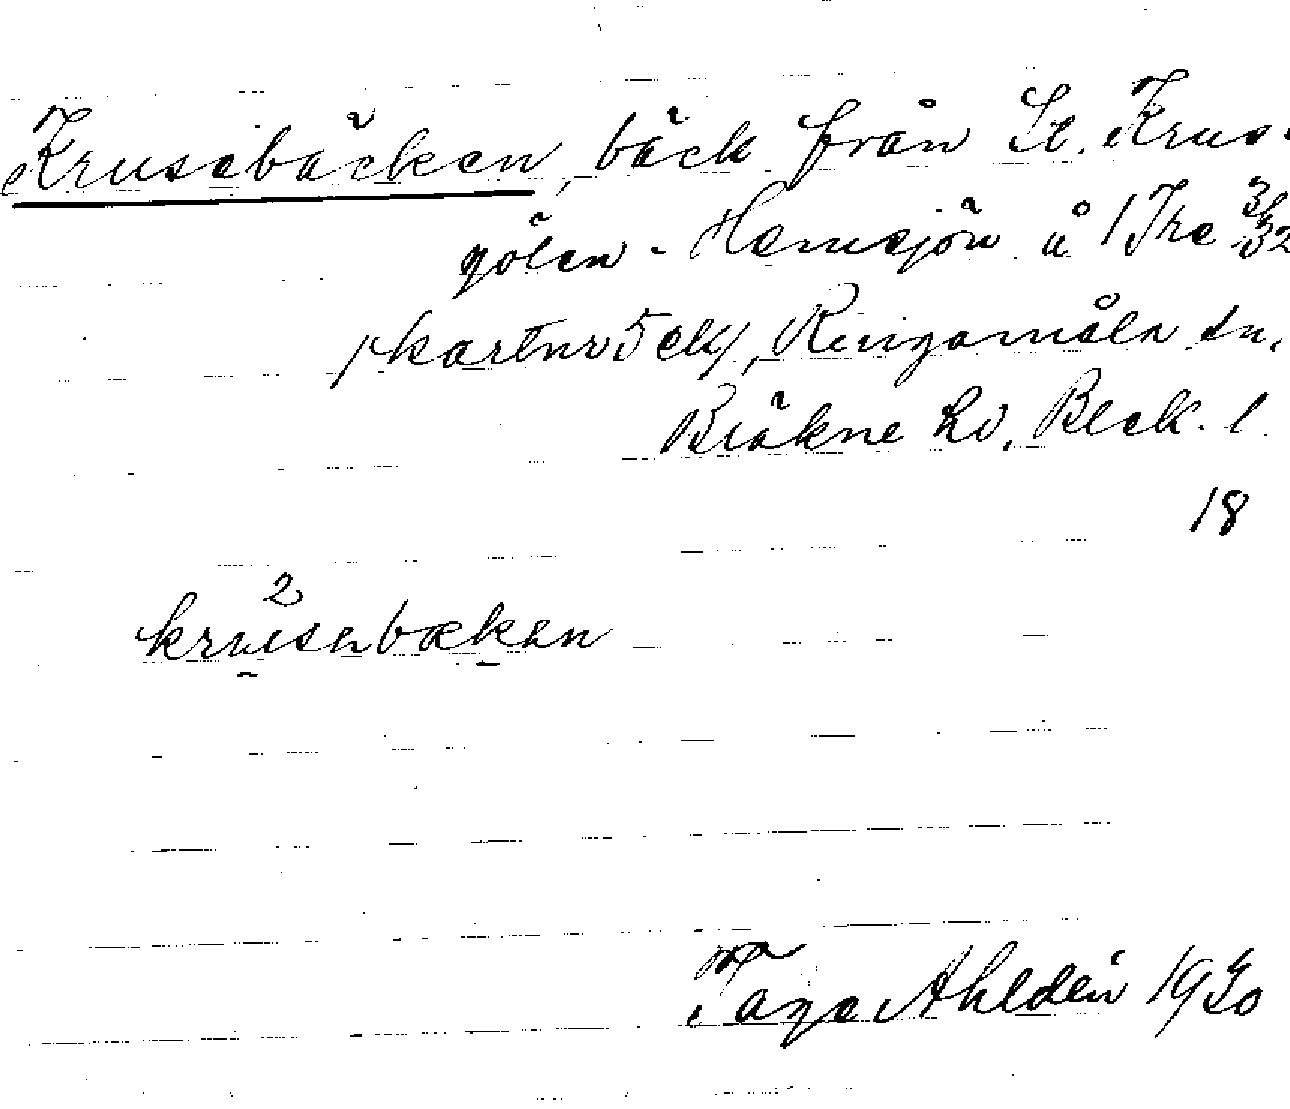 Krusebäcken, bäck från St. Krus-
gölen - Hemsjön å 1 The 3/32
/kartnr 5 ek/, Ringamåla sn,
Bräkne hd, Blek. l.
18
2
krusenbækən
Tage Ahldén 1930